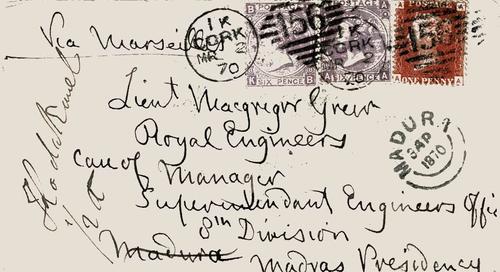 Via Marseilles
1 K
CORK
MR 2
70
156
1 K
CORK
MR 2
POSTAGE
SIX PENCE
POSTAGE
SIX PENCE
ONE PENNY
Lieut Macgregor Greer
Royal Engineers
Care of Manager
Superintendent Engineers Offi
8th Division
Madura
Madras Presidency
MADURA
3 AP
1870